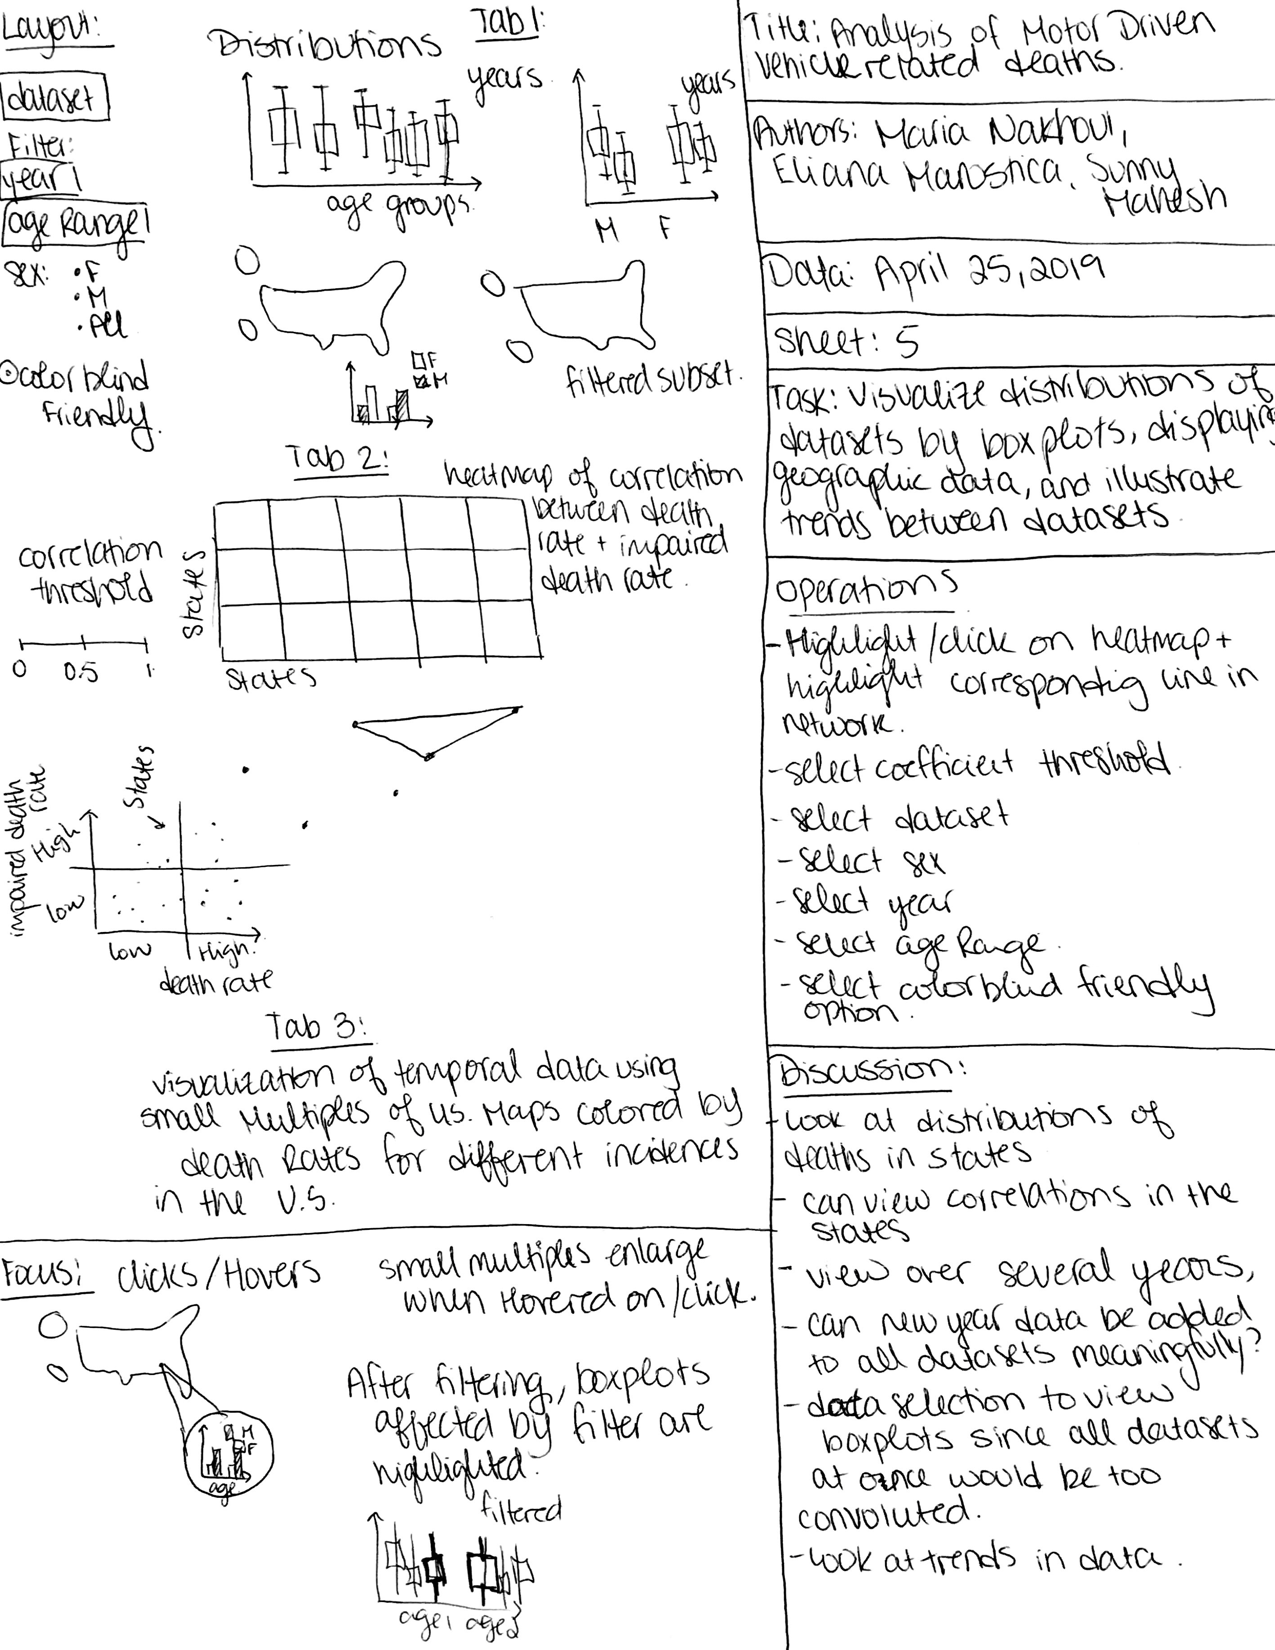 Layout:
dataset
Filter:
year
age Range
sex: • F
• M
• All
color blind
Friendly.
Tab 1:
Distributions
years
age groups.
years
M F
F
M
filtered subset.
Tab 2:
heatmap of correlation
between death
rate + impaired
death rate.
States
States
correlation
threshold
0 0.5 1
States
impaired death
rate
High
low
low High
death rate
Tab 3:
visualization of temporal data using
small multiples of U.S. Maps colored by
death Rates for different incidences
in the U.S.
Focus: clicks/Hovers
small multiples enlarge
when Hovered on/click.
M
F
age
After filtering, boxplots
affected by filter are
highlighted.
filtered
age1 age2
Title: Analysis of Motor Driven
Vehicle related deaths.
Authors: Maria Nakhoul,
Eliana Marostica, Sunny
Mahesh
Data: April 25, 2019
Sheet: 5
Task: Visualize distributions of
datasets by boxplots, displaying
geographic data, and illustrate
trends between datasets.
Operations
- Highlight/click on heatmap +
highlight corresponding line in
network.
- select coefficient threshold.
- select dataset
- select sex
- select year
- select age Range.
- select colorblind friendly
option.
Discussion:
- look at distributions of
deaths in states
- can view correlations in the
states
- view over several years,
- can new year data be added
to all datasets meaningfully?
- data selection to view
boxplots since all datasets
at once would be too
convoluted.
- look at trends in data.